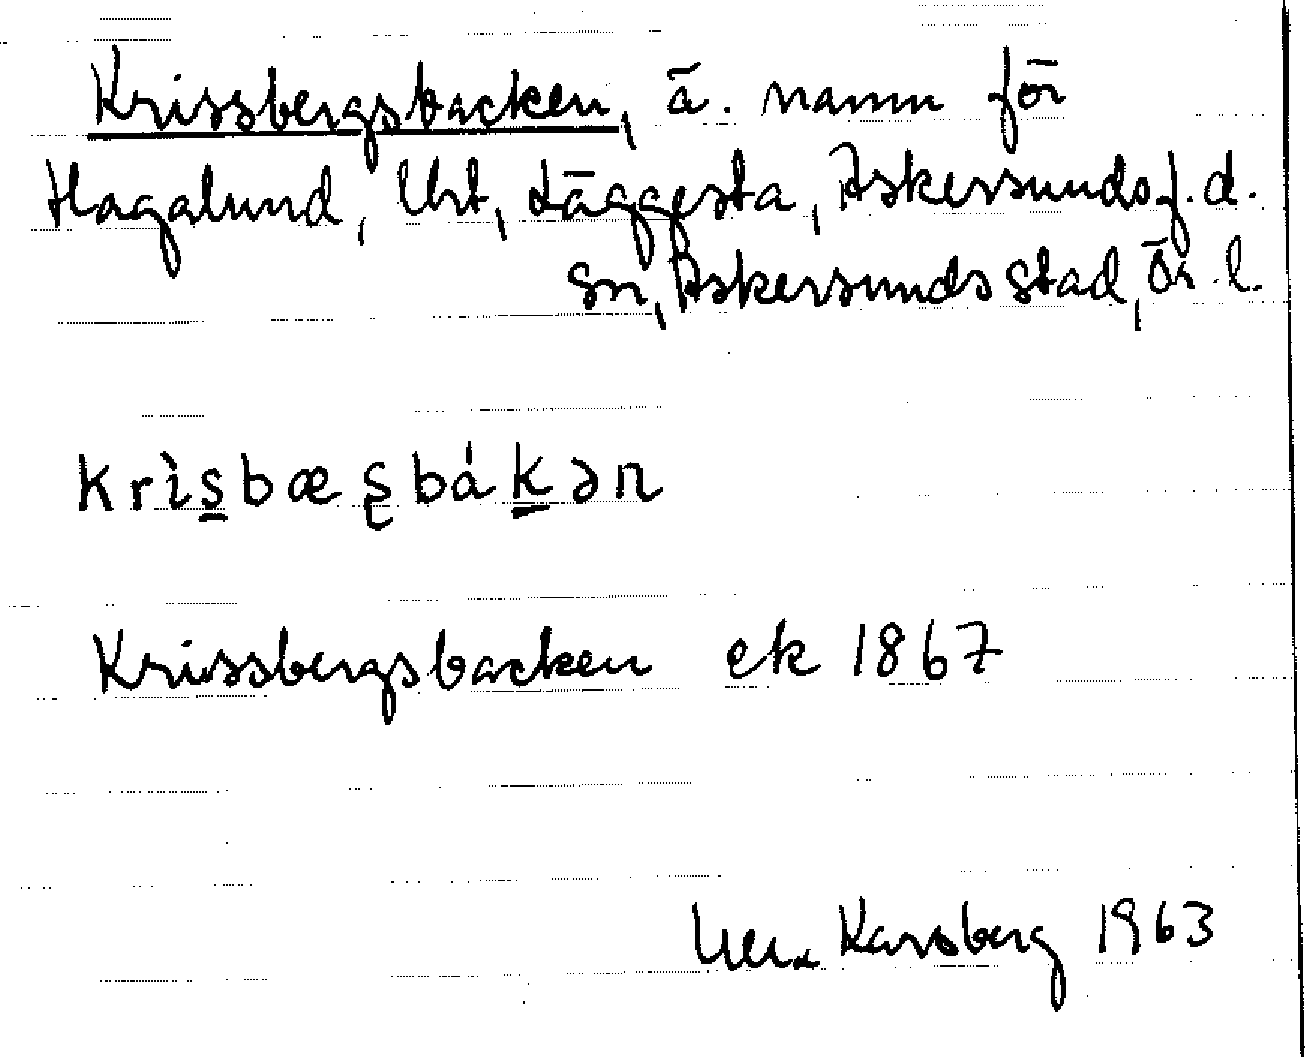 Krissbergsbacken, ä. namn för
Hagalund, Urt, Läggesta, Askersunds f.d.
sn, Askersunds stad, Ör. l.
krìs̲bæʂbák̲ən
Krissbergsbacken ek 1867
Karsberg 1963